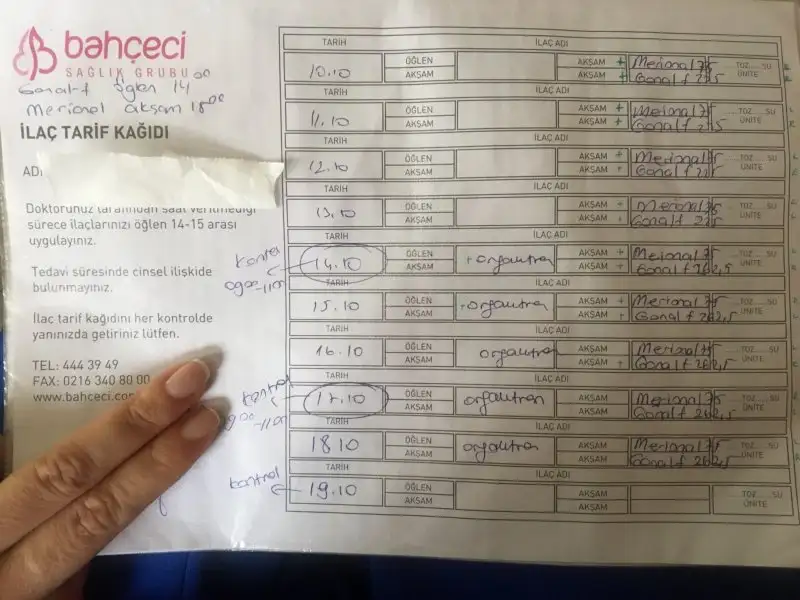 bahçeci
SAĞLIK GRUBU
Gonal-f öğlen 14 00
Merional akşam 18 00
İLAÇ TARİF KAĞIDI
ADI
Doktorunuz tarafından saat verilmediği
sürece ilaçlarınızı öğlen 14-15 arası
uygulayınız.
Tedavi süresinde cinsel ilişkide
bulunmayınız.
İlaç tarif kağıdını her kontrolde
yanınızda getiriniz lütfen.
TEL: 444 39 49
FAX: 0216 340 80 00
www.bahceci.com
TARİH İLAÇ ADI
10.10 ÖĞLEN AKŞAM + Merional 75 TOZ.....SU
AKŞAM AKŞAM + Gonal f 225 ÜNİTE
TARİH İLAÇ ADI
11.10 ÖĞLEN AKŞAM + Merional 75 TOZ.....SU
AKŞAM AKŞAM + Gonal f 225 ÜNİTE
TARİH İLAÇ ADI
12.10 ÖĞLEN AKŞAM + Merional 75 TOZ.....SU
AKŞAM AKŞAM + Gonal f 225 ÜNİTE
TARİH İLAÇ ADI
13.10 ÖĞLEN AKŞAM + Merional 75 TOZ.....SU
AKŞAM AKŞAM + Gonal f 225 ÜNİTE
TARİH İLAÇ ADI
kontrol 14.10 ÖĞLEN + orgalutran AKŞAM + Merional 75 TOZ.....SU
09 00 - 11 00 AKŞAM AKŞAM + Gonal f 262,5 ÜNİTE
TARİH İLAÇ ADI
15.10 ÖĞLEN + orgalutran AKŞAM + Merional 75 TOZ.....SU
AKŞAM AKŞAM + Gonal f 262,5 ÜNİTE
TARİH İLAÇ ADI
16.10 ÖĞLEN orgalutran AKŞAM Merional 75 TOZ.....SU
AKŞAM AKŞAM + Gonal f 262,5 ÜNİTE
TARİH İLAÇ ADI
kontrol 17.10 ÖĞLEN orgalutran AKŞAM Merional 75 TOZ.....SU
09 00 - 11 00 AKŞAM AKŞAM Gonal f 262,5 ÜNİTE
TARİH İLAÇ ADI
18.10 ÖĞLEN orgalutran AKŞAM Merional 75 TOZ.....SU
AKŞAM AKŞAM Gonal f 262,5 ÜNİTE
TARİH İLAÇ ADI
kontrol 19.10 ÖĞLEN AKŞAM TOZ.....SU
AKŞAM AKŞAM ÜNİTE